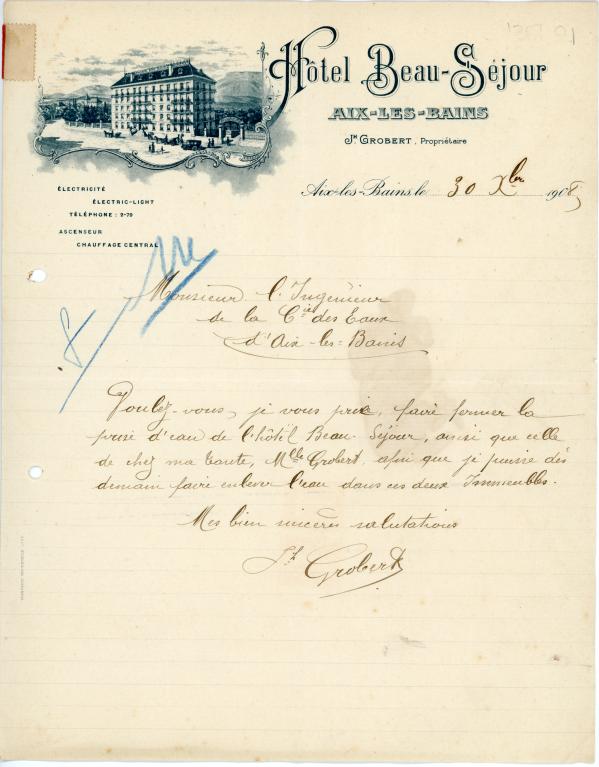 Hôtel Beau-Séjour
AIX-LES-BAINS
Jh GROBERT, Propriétaire
Aix-les-Bains, le 30 Xbre 1908
ÉLECTRICITÉ
ÉLECTRIC-LIGHT
TÉLÉPHONE : 2-70
ASCENSEUR
CHAUFFAGE CENTRAL
Monsieur l'Ingénieur
de la Cie des Eaux
d'Aix-les-Bains
Voulez-vous, je vous prie, faire fermer la
prise d'eau de l'hôtel Beau-Séjour, ainsi que celle
de chez ma tante, Mlle Grobert, afin que je puisse dès
demain faire enlever l'eau dans ces deux Immeubles.
Mes bien sincères salutations
Jh Grobert